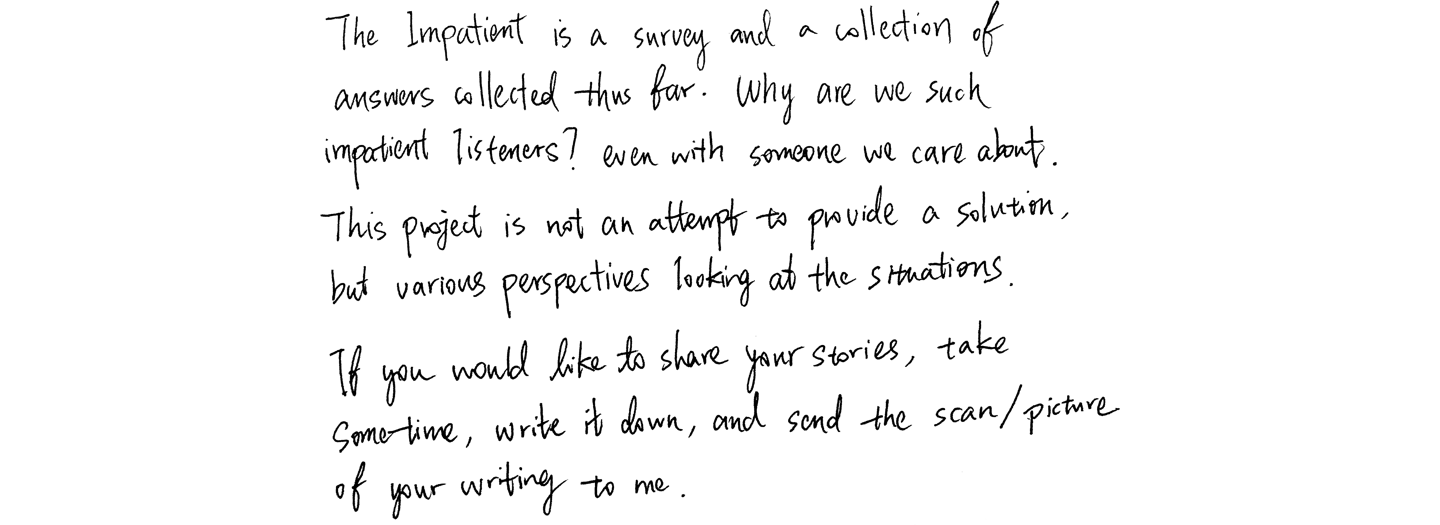 The Impatient is a survey and a collection of
answers collected thus far. Why are we such
impatient listeners? even with someone we care about.
This project is not an attempt to provide a solution,
but various perspectives looking at the situations.
If you would like to share your stories, take
sometime, write it down, and send the scan/picture
of your writing to me.